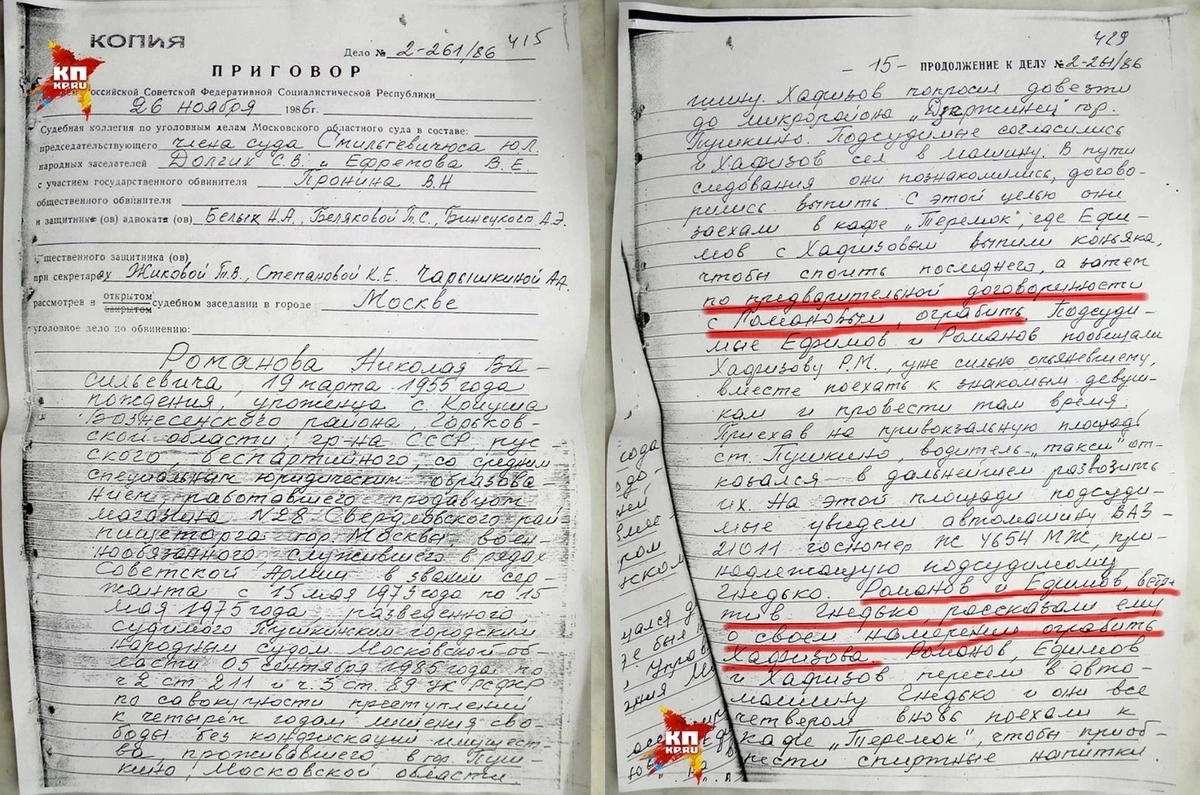 КОПИЯ
415
Дело № 2-261/86
КП
KP.RU
ПРИГОВОР
Российской Советской Федеративной Социалистической Республики
26 ноября 1986 г.
Судебная коллегия по уголовным делам Московского областного суда в составе:
председательствующего члена суда Стильгевичюса Ю.Л.
народных заседателей Долгих С.В. и Ефремова В.Е.
с участием государственного обвинителя Пронина В.Н
общественного обвинителя
и защитников (ов) адвоката (ов) Белых Н.А., Беляковой Т.С., Бинецкого А.Э.
щественного защитника (ов)
при секретарях Жиковой Т.В., Степановой К.Е. Чарышкиной А.А.
рассмотрев в открытом закрытом судебном заседании в городе Москве
уголовное дело по обвинению:
Романова Николая Ва-
сильевича, 19 марта 1955 года
рождения, уроженца с. Криуша
Вознесенского района, Горьков-
ской области, гр-на СССР, рус-
ского, беспартийного, со средним
специальным юридическим образова-
нием, работавшего продавцом
магазина №28 Свердловского рай-
пищеторга гор. Москвы, воен-
нообязанного, служившего в рядах
Советской Армии в звании сер-
жанта с 15 мая 1973 года по 15
мая 1975 года, разведенного,
судимого Пушкинским городским
народным судом Московской об-
ласти 05 сентября 1985 года по
ч 2 ст 211 и ч. 3 ст. 89 УК РСФСР
по совокупности преступлений
к четырем годам лишения сво-
боды без конфискации имущест-
ва, проживавшего в гор. Пуш-
кино, Московской области
429
- 15 - ПРОДОЛЖЕНИЕ К ДЕЛУ № 2-261/86
шину. Хафизов попросил довезти
до микрорайона „Дзержинец" гор.
Пушкино. Подсудимые согласились
и Хафизов сел в машину. В пути
следования они познакомились, догово-
рились выпить. С этой целью они
заехали в кафе „Теремок", где Ефи-
мов с Хафизовым выпили коньяка,
чтобы споить последнего, а затем
по предварительной договоренности
с Романовым, ограбить. Подсуди-
мые Ефимов и Романов пообещали
Хафизову Р.М., уже сильно опьяневшему,
вместе поехать к знакомым девуш-
кам и провести там время.
Приехав на привокзальную площадь
ст. Пушкино, водитель „такси" от-
казался в дальнейшем развозить
их. На этой площади подсуди-
мые увидели автомашину ВАЗ-
21011 госномер Ж 4654 МЖ, при-
надлежащую подсудимому
Гнедько. Романов и Ефимов, встре-
тив Гнедько, рассказали ему
о своем намерении ограбить
Хафизова. Романов, Ефимов
и Хафизов пересели в авто-
машину Гнедько и они все
четвером вновь поехали к
кафе „Теремок", чтобы приоб-
рести спиртные напитки
КП
KP.RU